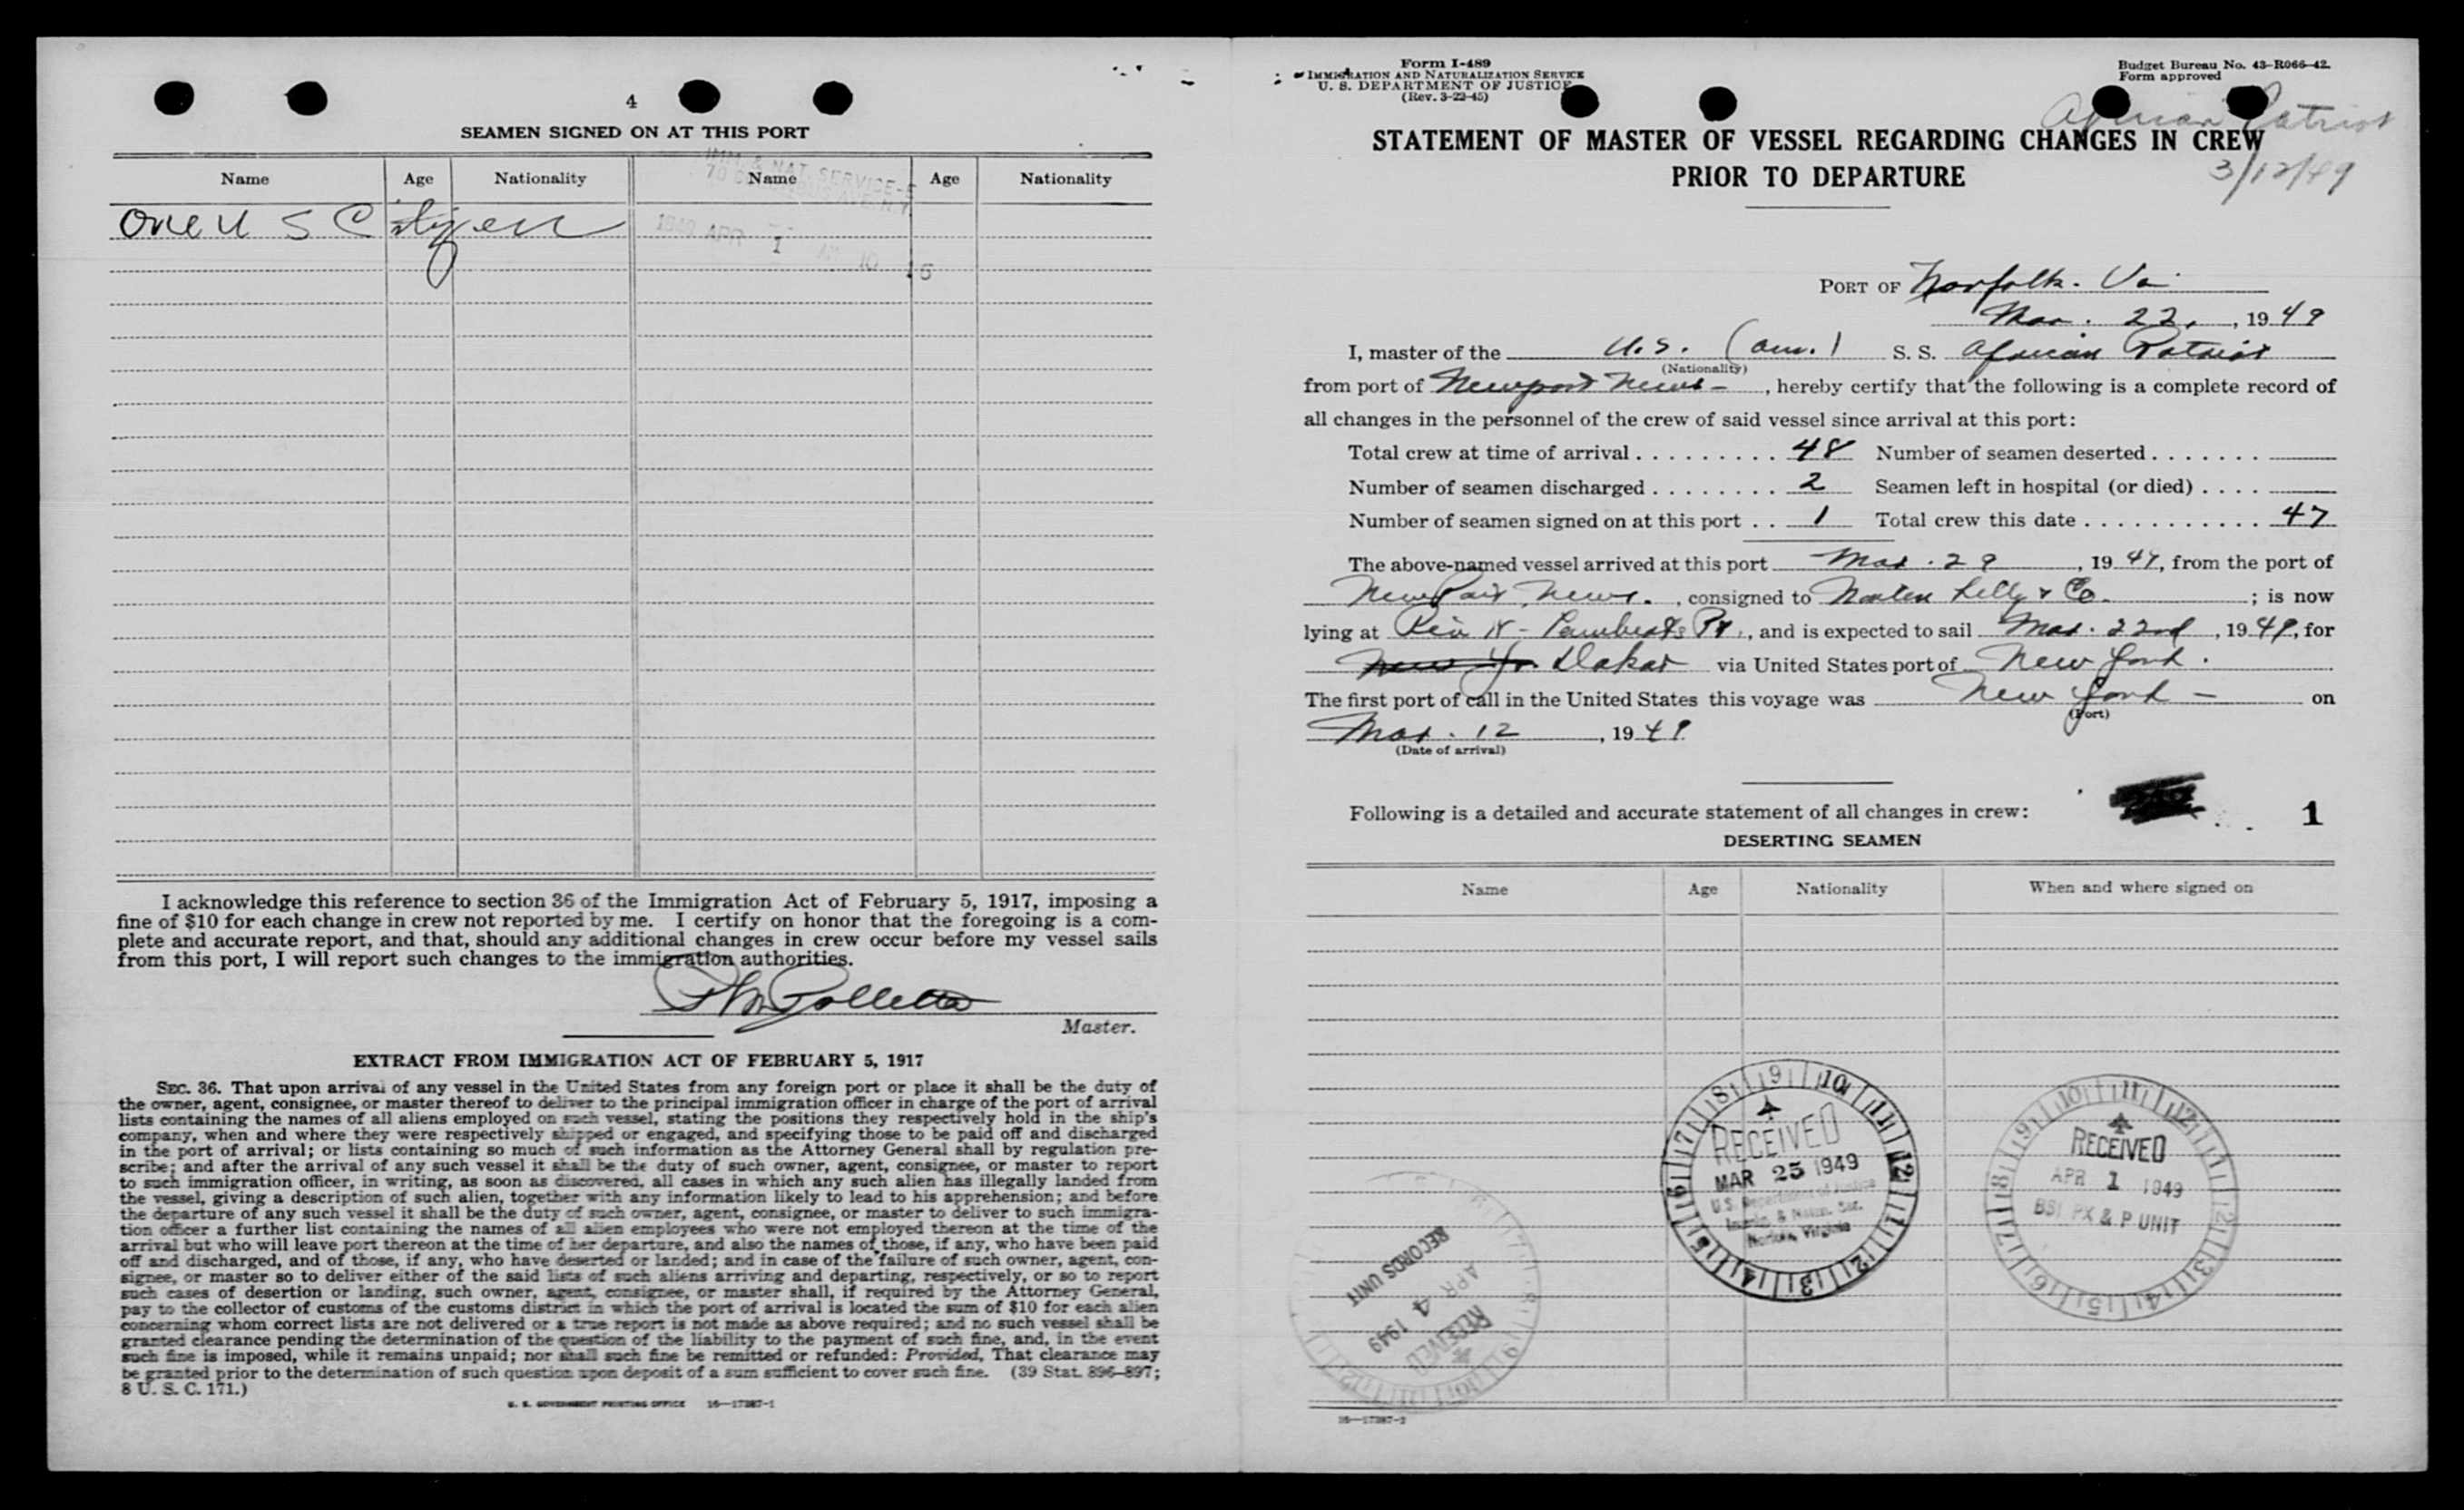 4
SEAMEN SIGNED ON AT THIS PORT
Name Age Nationality Name Age Nationality
IMM. & NAT. SERVICE
1949 APR 1 AM 10 15
One U S Citizen
I acknowledge this reference to section 36 of the Immigration Act of February 5, 1917, imposing a
fine of $10 for each change in crew not reported by me. I certify on honor that the foregoing is a com-
plete and accurate report, and that, should any additional changes in crew occur before my vessel sails
from this port, I will report such changes to the immigration authorities.
Master.
EXTRACT FROM IMMIGRATION ACT OF FEBRUARY 5, 1917
SEC. 36. That upon arrival of any vessel in the United States from any foreign port or place it shall be the duty of
the owner, agent, consignee, or master thereof to deliver to the principal immigration officer in charge of the port of arrival
lists containing the names of all aliens employed on such vessel, stating the positions they respectively hold in the ship's
company, when and where they were respectively shipped or engaged, and specifying those to be paid off and discharged
in the port of arrival; or lists containing so much of such information as the Attorney General shall by regulation pre-
scribe; and after the arrival of any such vessel it shall be the duty of such owner, agent, consignee, or master to report
to such immigration officer, in writing, as soon as discovered, all cases in which any such alien has illegally landed from
the vessel, giving a description of such alien, together with any information likely to lead to his apprehension; and before
the departure of any such vessel it shall be the duty of such owner, agent, consignee, or master to deliver to such immigra-
tion officer a further list containing the names of all alien employees who were not employed thereon at the time of the
arrival but who will leave port thereon at the time of her departure, and also the names of those, if any, who have been paid
off and discharged, and of those, if any, who have deserted or landed; and in case of the failure of such owner, agent, con-
signee, or master so to deliver either of the said lists of such aliens arriving and departing, respectively, or so to report
such cases of desertion or landing, such owner, agent, consignee, or master shall, if required by the Attorney General,
pay to the collector of customs of the customs district in which the port of arrival is located the sum of $10 for each alien
concerning whom correct lists are not delivered or a true report is not made as above required; and no such vessel shall be
granted clearance pending the determination of the question of the liability to the payment of such fine, and, in the event
such fine is imposed, while it remains unpaid; nor shall such fine be remitted or refunded: Provided, That clearance may
be granted prior to the determination of such question upon deposit of a sum sufficient to cover such fine. (39 Stat. 896-897;
8 U. S. C. 171.)
U. S. GOVERNMENT PRINTING OFFICE 16-17387-1
Form I-489
IMMIGRATION AND NATURALIZATION SERVICE
U. S. DEPARTMENT OF JUSTICE
(Rev. 3-22-45)
Budget Bureau No. 43-R066-42.
Form approved
African Patriot
3/12/49
STATEMENT OF MASTER OF VESSEL REGARDING CHANGES IN CREW
PRIOR TO DEPARTURE
PORT OF Norfolk. Va
Mar. 22, 1949
I, master of the U.S. (am.) S. S. African Patriot
(Nationality)
from port of Newport News -, hereby certify that the following is a complete record of
all changes in the personnel of the crew of said vessel since arrival at this port:
Total crew at time of arrival . . . . . . . . . 48 Number of seamen deserted . . . . . . .
Number of seamen discharged . . . . . . . . 2 Seamen left in hospital (or died) . . . .
Number of seamen signed on at this port . . 1 Total crew this date . . . . . . . . . . . . 47
The above-named vessel arrived at this port Mar. 29, 1949, from the port of
Newport News., consigned to Norton Lilly & Co. ; is now
lying at Pier N - Pt., and is expected to sail Mar. 22nd, 1949, for
Dakar via United States port of New York.
The first port of call in the United States this voyage was New York - on
(Port)
Mar. 12, 1949
(Date of arrival)
Following is a detailed and accurate statement of all changes in crew:
1
DESERTING SEAMEN
Name Age Nationality When and where signed on
RECEIVED
MAR 25 1949
U.S. Department of Justice
Immig. & Natzn. Ser.
Norfolk, Virginia
RECEIVED
APR 1 1949
BSI PX & P UNIT
RECEIVED
APR 4 1949
RECORDS UNIT
16-17387-2